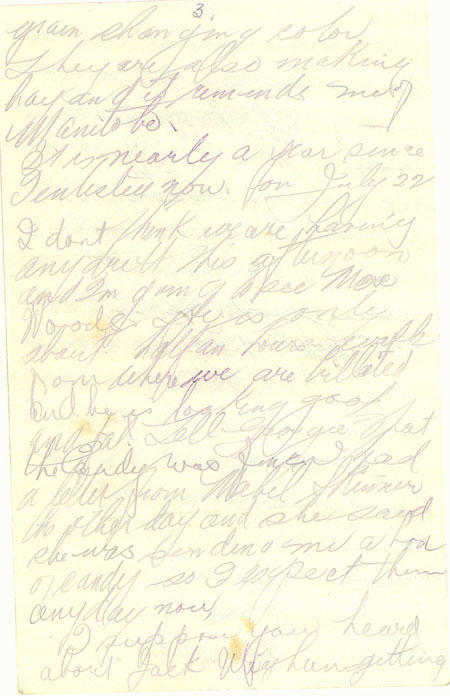 3
grain changing color
They are also making
hay and it reminds me of
Manitoba.
It is nearly a year since
I enlisted now. on July 22
I dont think we are having
any drill this afternoon
and Im going to see Max
He is only
about half an hours walk
from where we are billeted
and he is looking good
and fat. Tell Georgie that
the candy was fine. I had
a letter from Mabel Skinner
the other day and she said
she was sending me a box
of candy so I expect them
anyday now.
I suppose you heard
about Jack getting